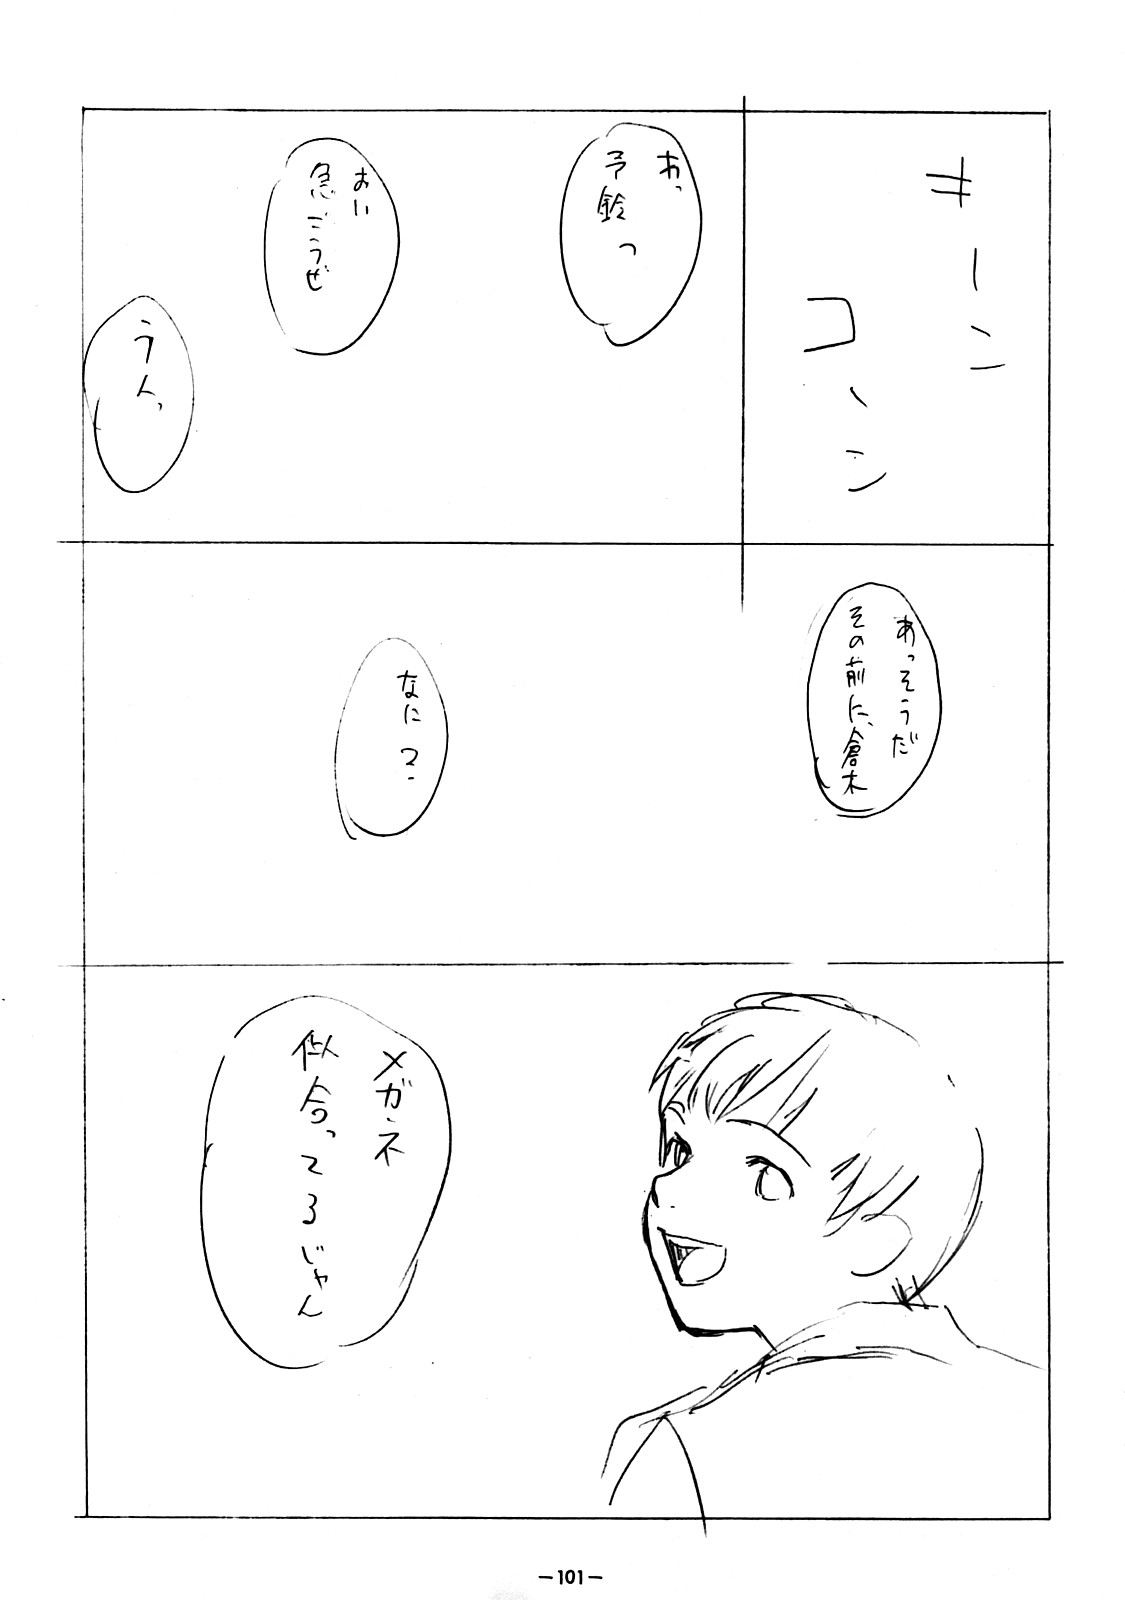 キーン
コーン
あっ
予鈴っ
おい
急ごうぜ
うんっ
あっそうだ
その前に、倉木
なに?
メガネ
似合ってるじゃん
-101-